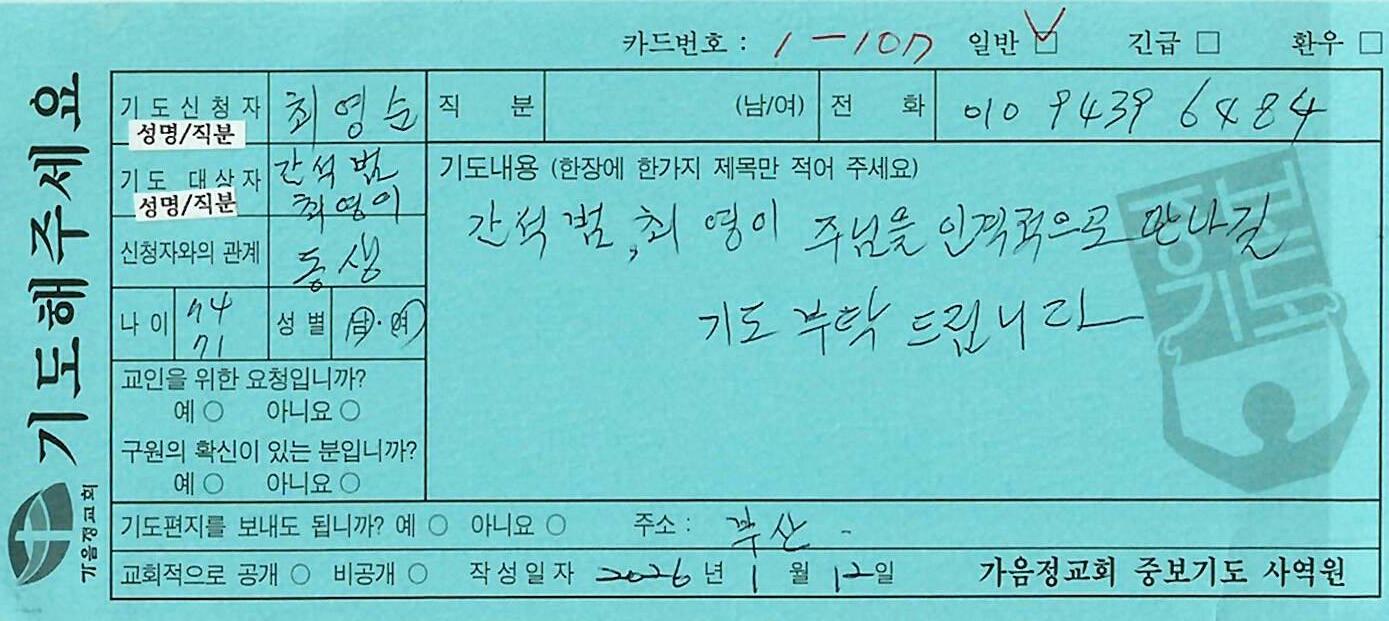 기도해주세요
가음정교회
카드번호 : 1-107 일반 □ 긴급 □ 환우 □
기도신청자 성명/직분 최영순 직 분 (남/여) 전 화 010 9439 6484
기도 대상자 성명/직분 간석범 최영이
신청자와의 관계 동생
나이 74 71 성별 남·여
교인을 위한 요청입니까?
예 ○ 아니요 ○
구원의 확신이 있는 분입니까?
예 ○ 아니요 ○
기도내용 (한장에 한가지 제목만 적어 주세요)
간석범, 최영이 주님을 인격적으로 만나길
기도 부탁 드립니다
중보
기도
기도편지를 보내도 됩니까? 예 ○ 아니요 ○ 주소 : 부산 -
교회적으로 공개 ○ 비공개 ○ 작성일자 2026년 1월 12일 가음정교회 중보기도 사역원